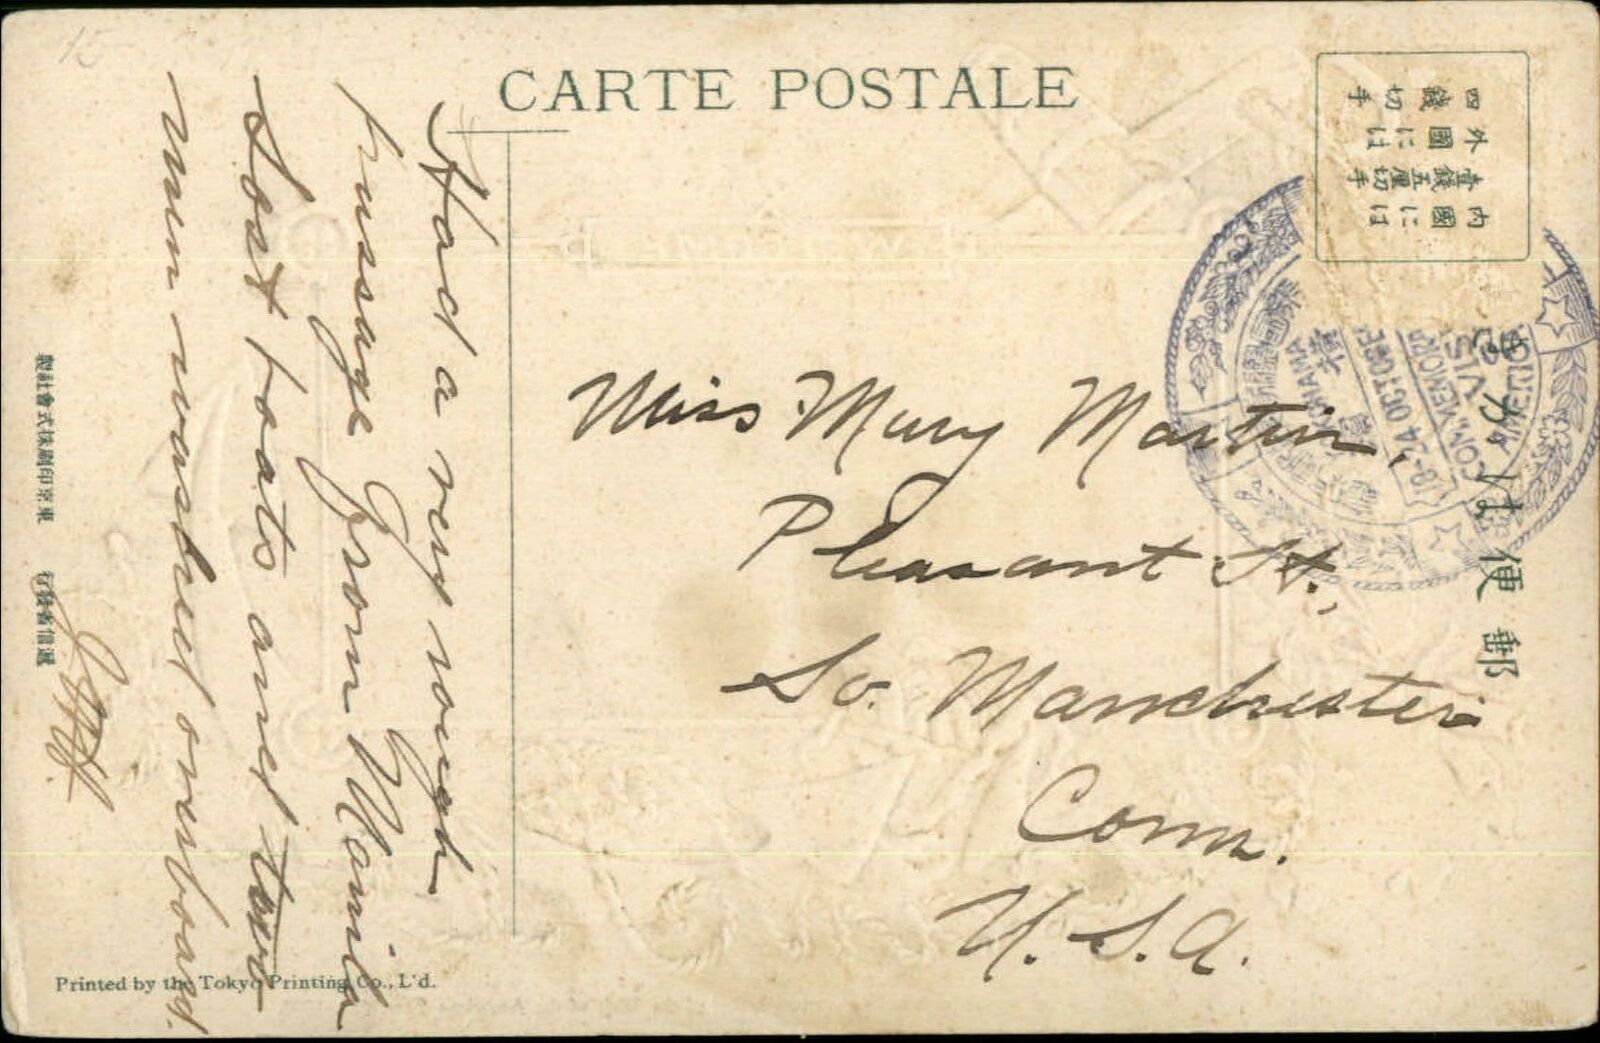 15
CARTE POSTALE
Had a very rough
passage from Manila
Lost boats and two
men washed overboard.
Miss Mary Martin,
Pleasant St.,
So. Manchester
Conn.
U. S. A.
内國には
壹錢五厘切手
外國には
四錢切手
郵便はかき
YOKOHAMA
18-24 OCTOBER
COM. MEMOR
VIS
AMERICA
東京印刷株式會社製
逓信省發行
Printed by the Tokyo Printing Co., L'd.